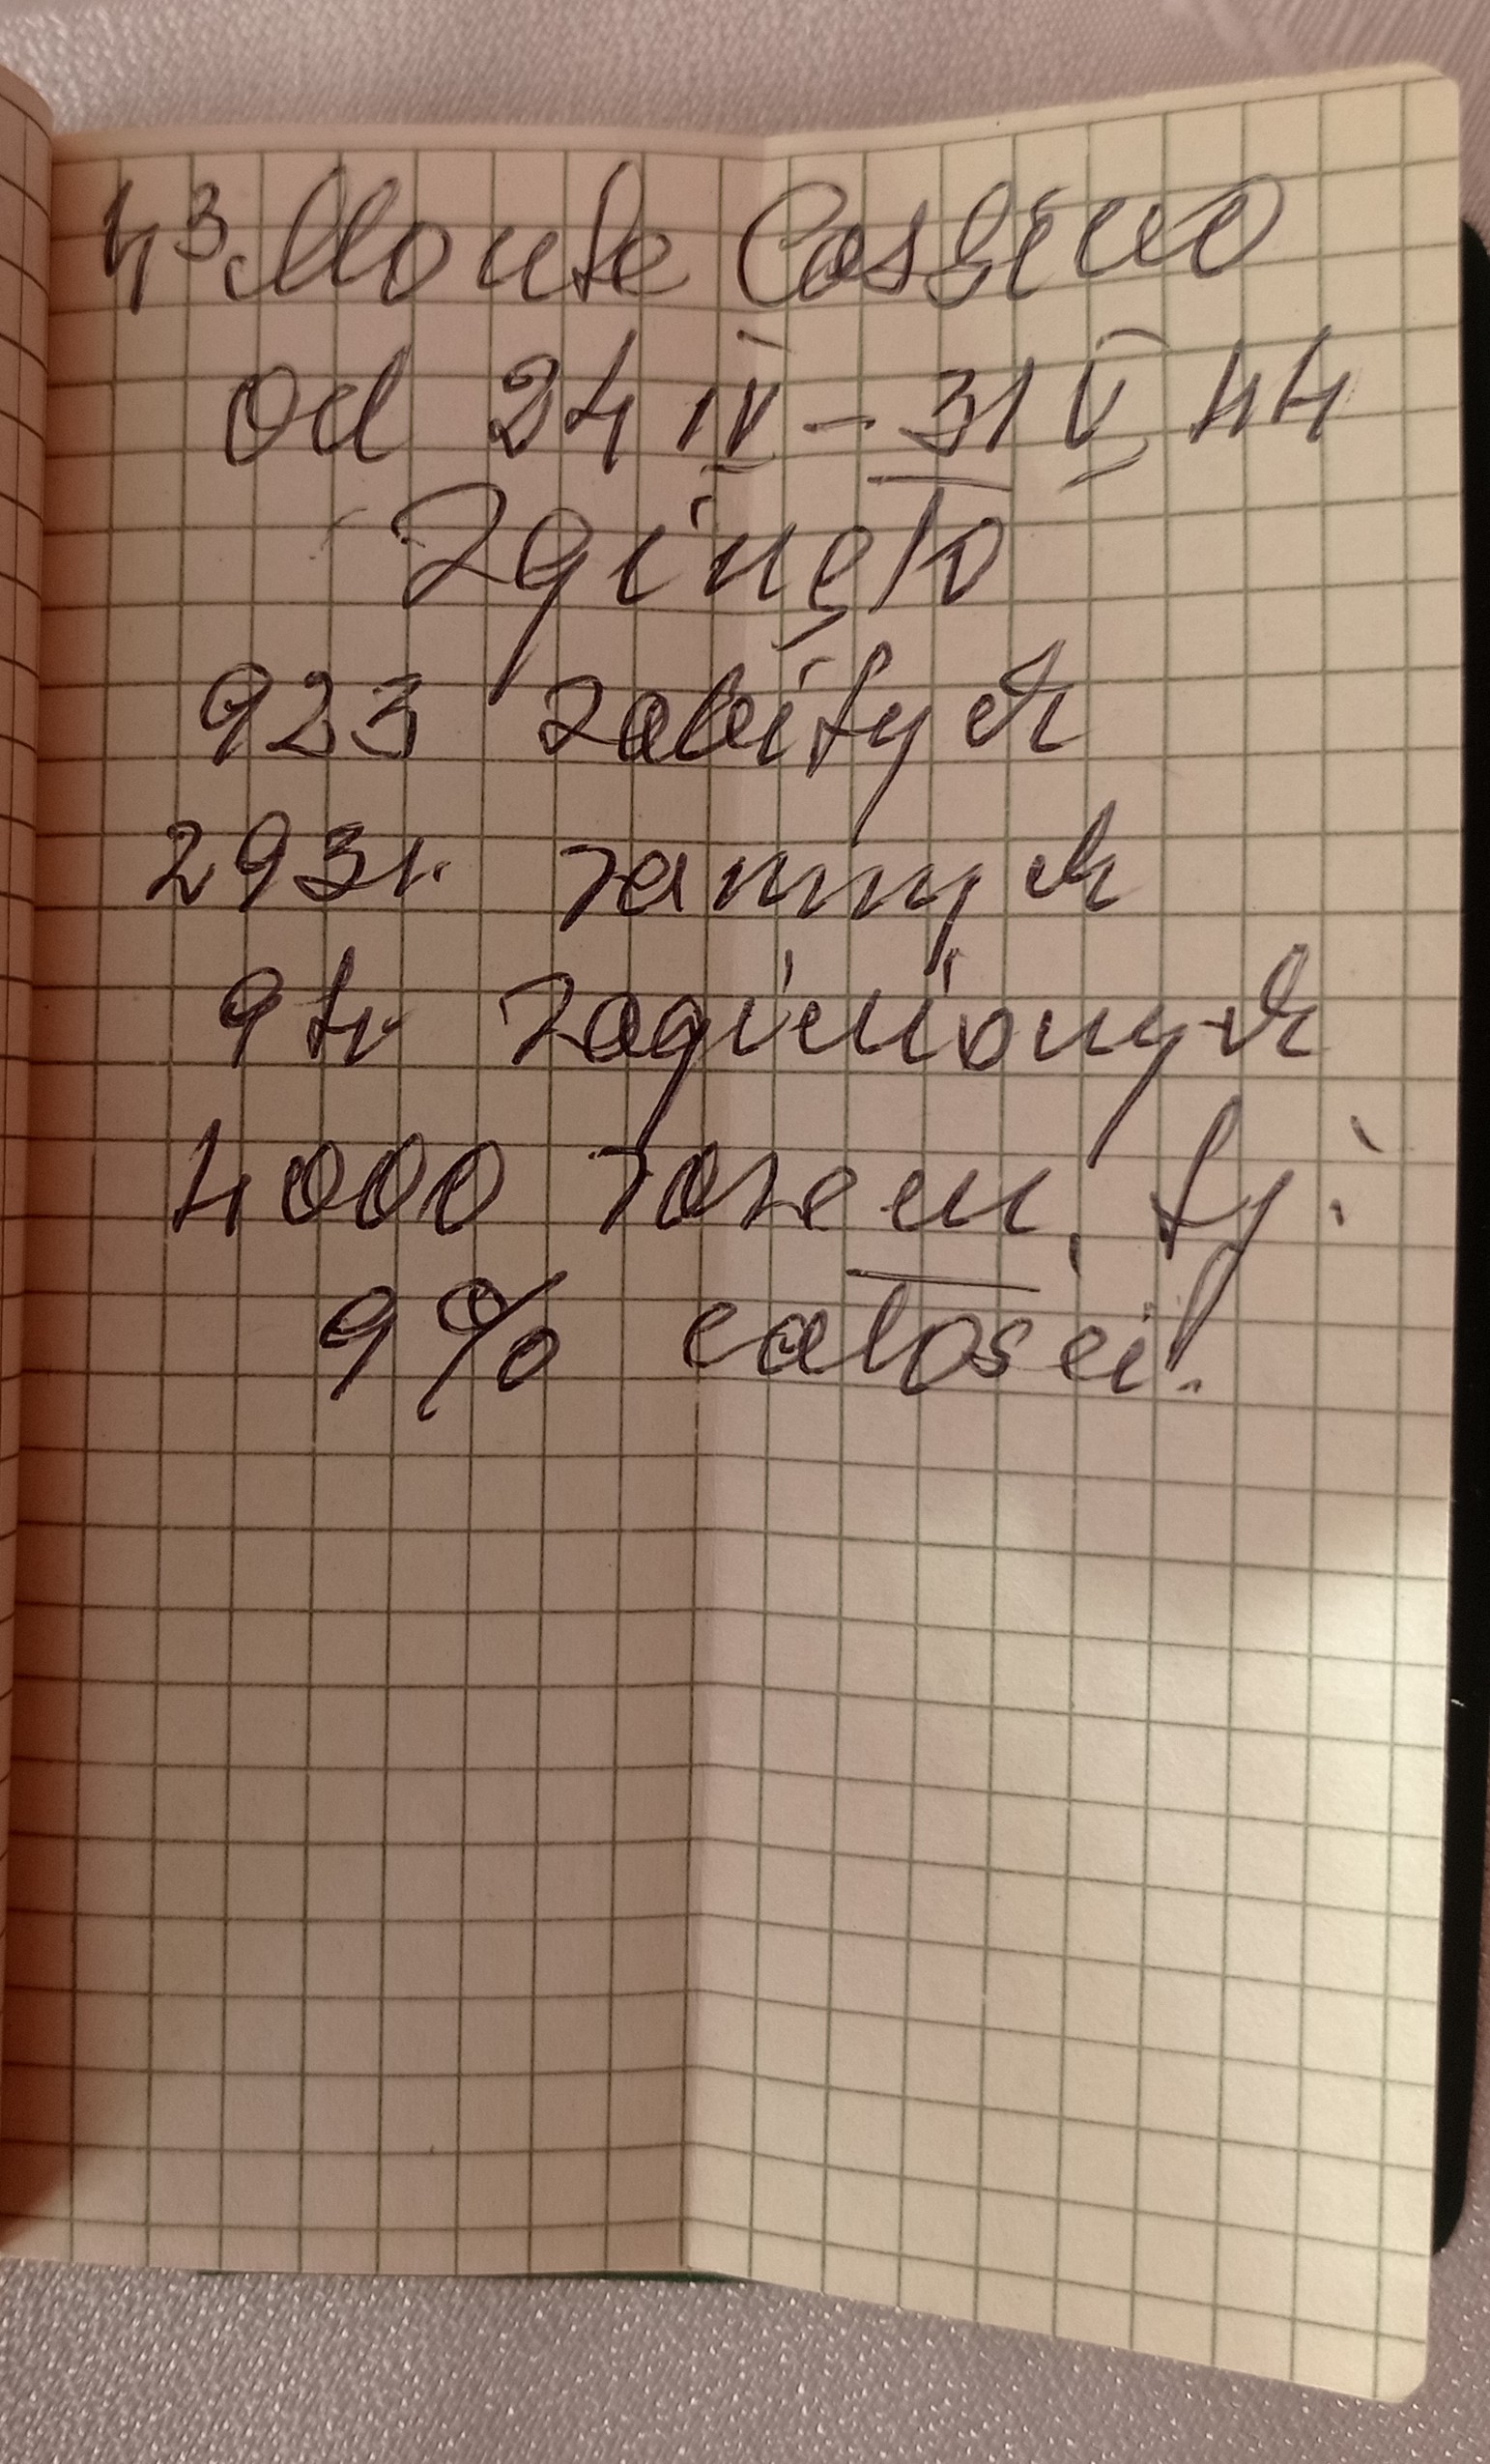 43 Monte Cassino
Od 24 IV - 31 V 44
Zginęło
923 zabitych
2931. rannych
94. zaginionych
4000 razem, tj:
9% całości.